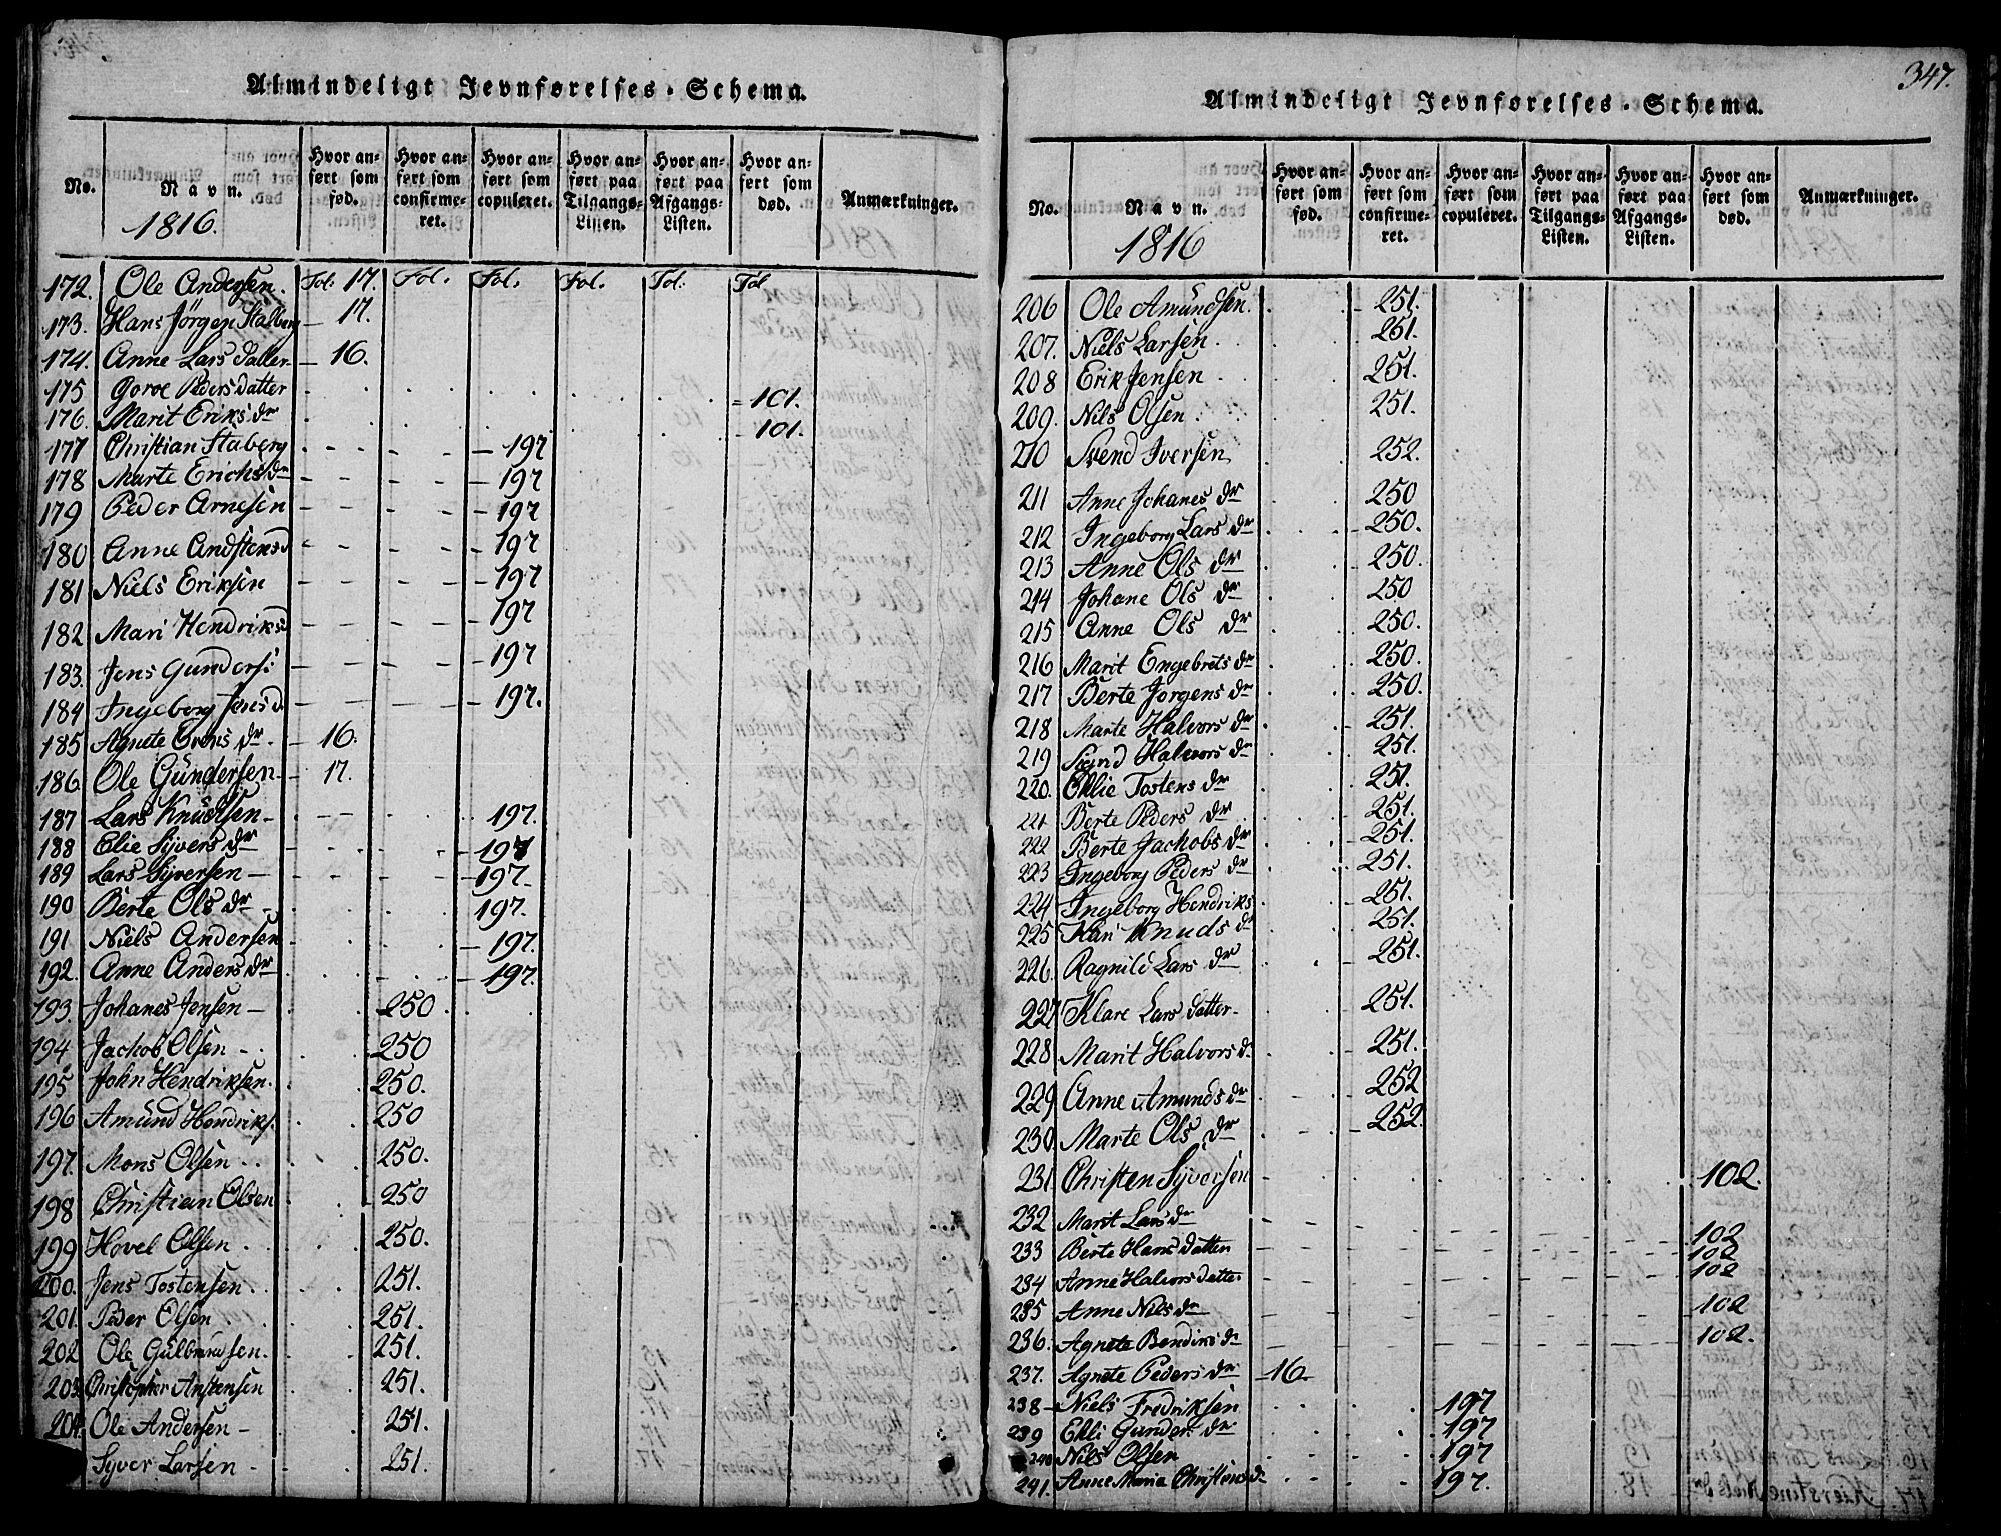 Almindeligt Jevnførelses-Schema.
No.
Navn.
1816.
Hvor anført som fød.
Hvor anført som confirmeret.
Hvor anført som copuleret.
Hvor anført paa Tilgangs-Listen.
Hvor anført paa Afgangs-Listen.
Hvor anført som død.
Anmærkninger.
172. Ole Andersen. Fol: 17. Fol. Fol. Fol. Fol. Fol
173. Hans Jörgen Stalberg 17.
174. Anne Lars datter 16.
175 Goroe Peders datter 101.
176. Marit Eriks dr 101.
177 Christian Staberg 197
178 Marte Erichs dr 197
179 Peder Arnesen 197
180 Anne Andstensd 197
181 Niels Eriksen 197
182 Mari Hendriksd 197
183. Jens Gunders: 197
184 Ingeborg Jens d. 197.
185 Agnete dr. 16.
186. Ole Gündersen 17.
187 Lars Knudtsen 197.
188 Elie Syvers dr 197
189 Lars Syversen 197.
190 Berte Ols dr 197.
191 Niels Andersen 197.
192. Anne Anders dr 197.
193. Johanes Jensen 250
194 Jachob Olsen 250
195 John Hendriksen. 250.
196 Amünd Hendriks. 250
197. Mons Olsen 250.
198 Christian Olsen 250
199 Hovel Olsen 250.
200. Jens Tostensen 251.
201. Peder Olsen 251.
202 Ole Gulbrandsen. 251.
203 Christopher Anstensen 251.
204. Ole Andersen 251.
Syver Larsen 251.
347.
Almindeligt Jevnførelses-Schema.
No.
Navn.
1816
Hvor anført som fød.
Hvor anført som confirmeret.
Hvor anført som copuleret.
Hvor anført paa Tilgangs-Listen.
Hvor anført paa Afgangs-Listen.
Hvor anført som død.
Anmærkninger.
206 Ole Amündsen. 251.
207. Niels Larsen. 251.
208 Erik Jensen 251.
209. Nils Olsen 251.
210 Svend Iversen 252.
211 Anne Johanes dr 250
212 Ingeborg Lars dr 250.
213 Anne Ols dr 250.
214 Johane Ols dr 250
215 Anne Ols dr 250.
216 Marit Engebrets dr 250.
217 Berte Jorgens dr 250.
218 Marte Halvors dr 251.
219 Sigrid Halvors dr 251.
220. Ellie Tostens dr 251.
221 Berte Peders dr 251.
222 Berte Jachobs dr 251.
223 Ingeborg Peders dr 251.
224 Ingeborg Hendriks 251.
225 Kari Knuds dr 251.
226. Ragnild Lars dr 251.
227 Klare Lars datter. 251.
228 Marit Halvors d. 251.
229 Anne Amunds dr 252
230 Marte Ols dr 252.
231 Christen Syversen 102.
232 Marit Lars dr 102
233 Berte Hans datter 102
234 Anne Halvors datter 102
235 Anne Nils dr 102
236. Agnete Bendiks dr 102.
237. Agnete Peders dr 16
238 Niels Fredriksen 197
239 Elli Gunder dr 197
240 Nils Olsen 197
241. Anne Maria Christens dr 197.